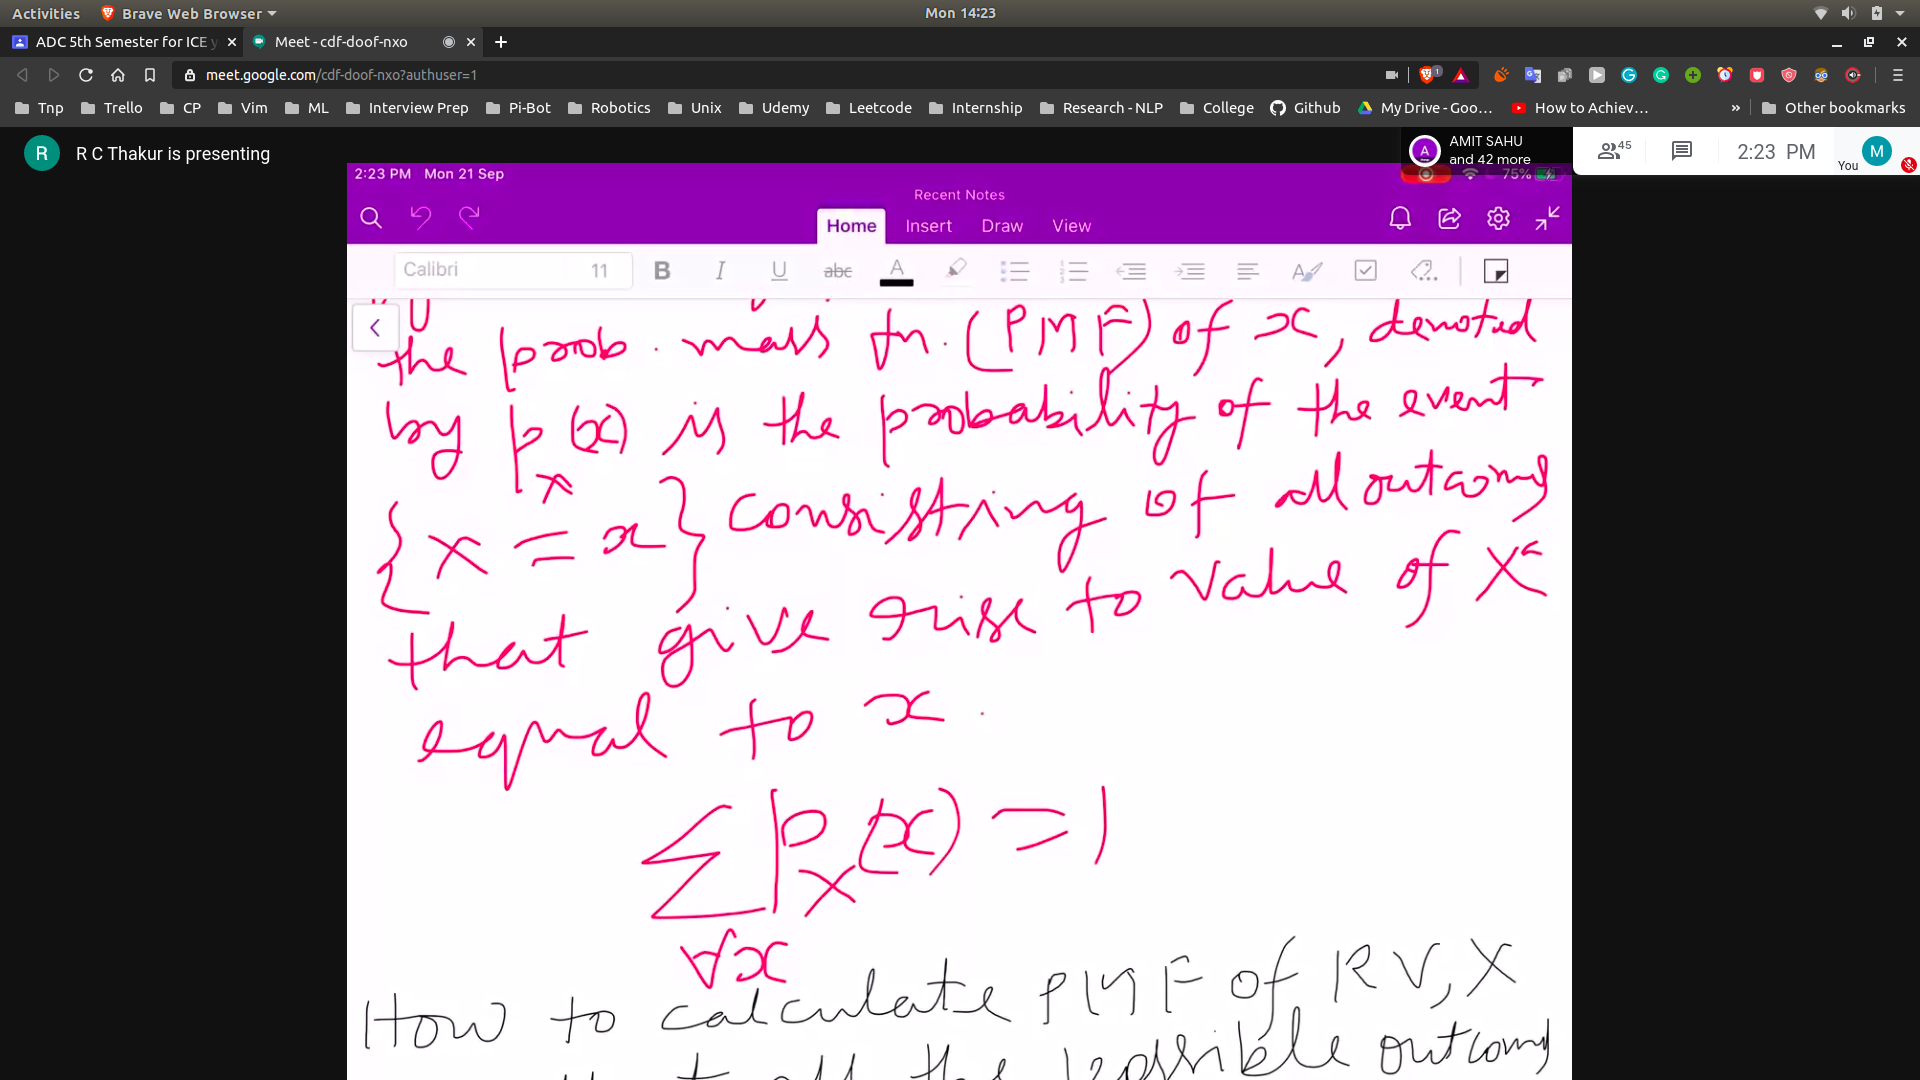 Activities Brave Web Browser Mon 14:23
ADC 5th Semester for ICE y Meet - cdf-doof-nxo
meet.google.com/cdf-doof-nxo?authuser=1 1
Tnp Trello CP Vim ML Interview Prep Pi-Bot Robotics Unix Udemy Leetcode Internship Research - NLP College Github My Drive - Goo... How to Achiev... » Other bookmarks
R R C Thakur is presenting
A AMIT SAHU and 42 more 45 2:23 PM You M
2:23 PM Mon 21 Sep 75%
Recent Notes
Home Insert Draw View
Calibri 11 B I U abc A
the prob. mass fn. (PMF) of x, denoted
by p_X(x) is the probability of the event
{X = x} consisting of all outcomes
that give rise to value of X
equal to x.
∑ p_X(x) = 1
∀x
How to calculate PMF of RV, X
all the possible outcomes